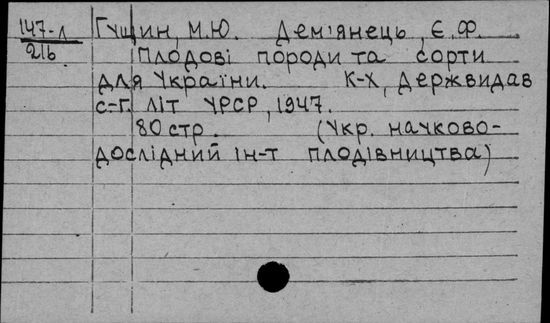 147-л Гущин, М.Ю. Дем'янець, Є.Ф.
216 Плодові породи та сорти
для України. К-Х, Держвидав
с=г. літ УРСР, 1947.
80 стр. (Укр. науково-
дослідний ін-т плодівництва)